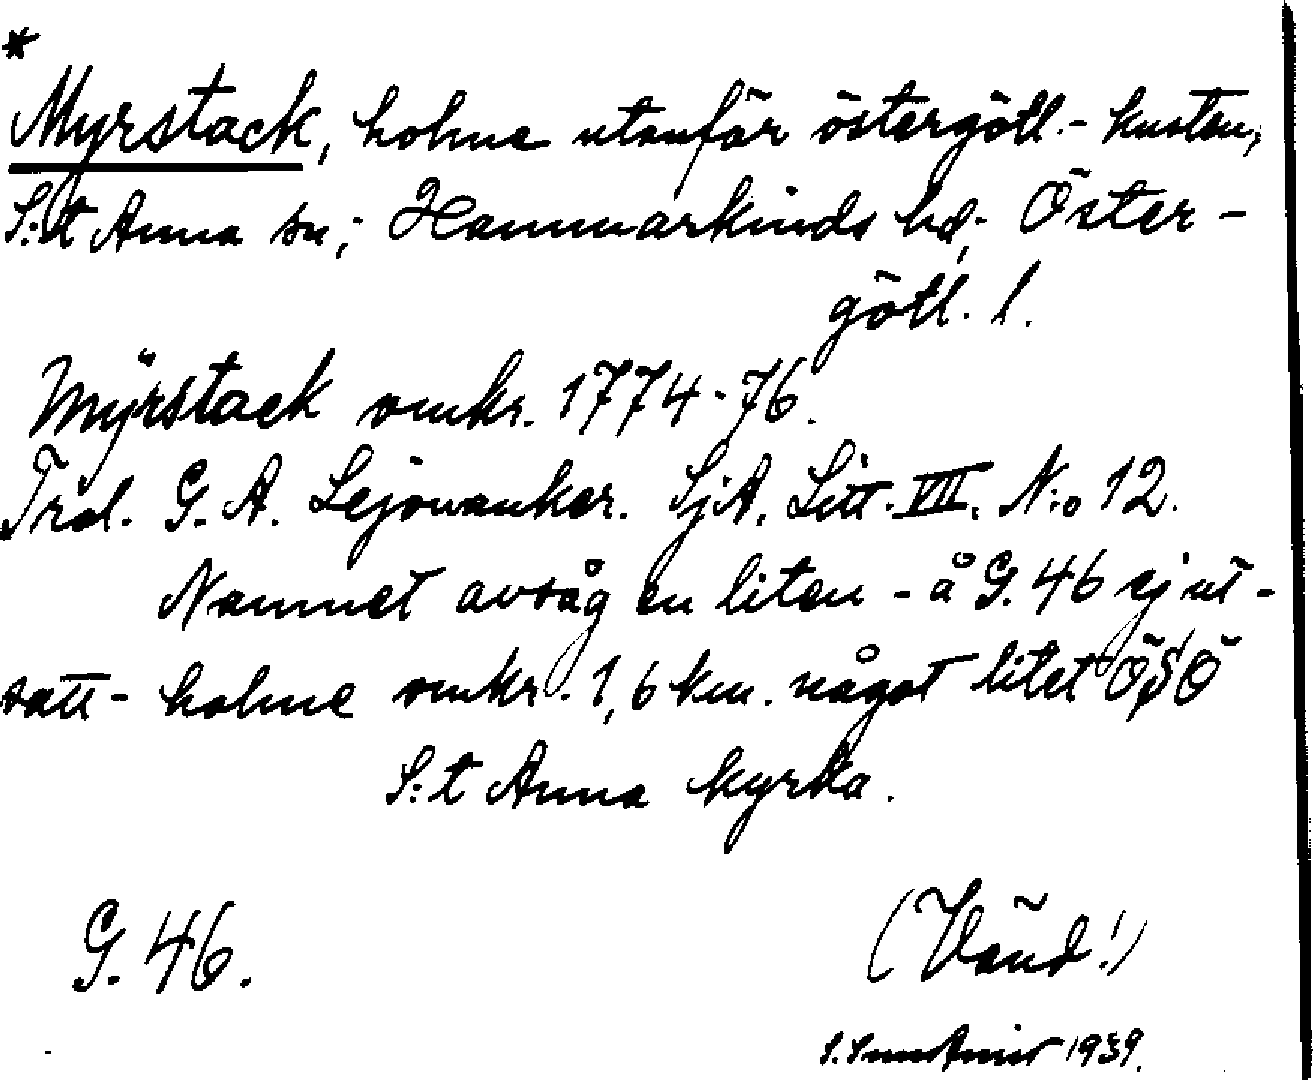 *
Myrstack, holme utanför östergötl.- kusten,
S:t Anna sn, Hammarkinds hd, Öster-
götl. l.
Mÿrstack omkr. 1774-76.
Trol. G. A. Lejonanker. SjA. Litt. VII. N:o 12.
Namnet avsåg en liten - å G. 46 ej ut-
satt - holme omkr. 1,6 km. något litet ÖSÖ
S:t Anna kyrka.
G. 46.
(Vänd!)
1939.